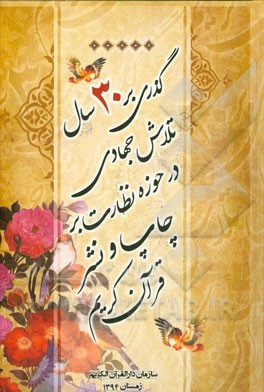 گذری بر ۳۰ سال
تلاش جهادی
در حوزه نظارت بر
چاپ و نشر
قرآن کریم
سازمان دارالقرآن الکریم
زمستان ۱۳۹۲